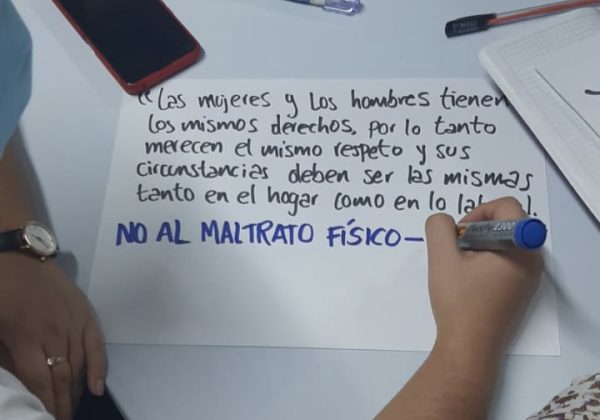 "Las mujeres y los hombres tienen
los mismos derechos, por lo tanto
merecen el mismo respeto y sus
circunstancias deben ser las mismas
tanto en el hogar como en lo
NO AL MALTRATO FÍSICO-